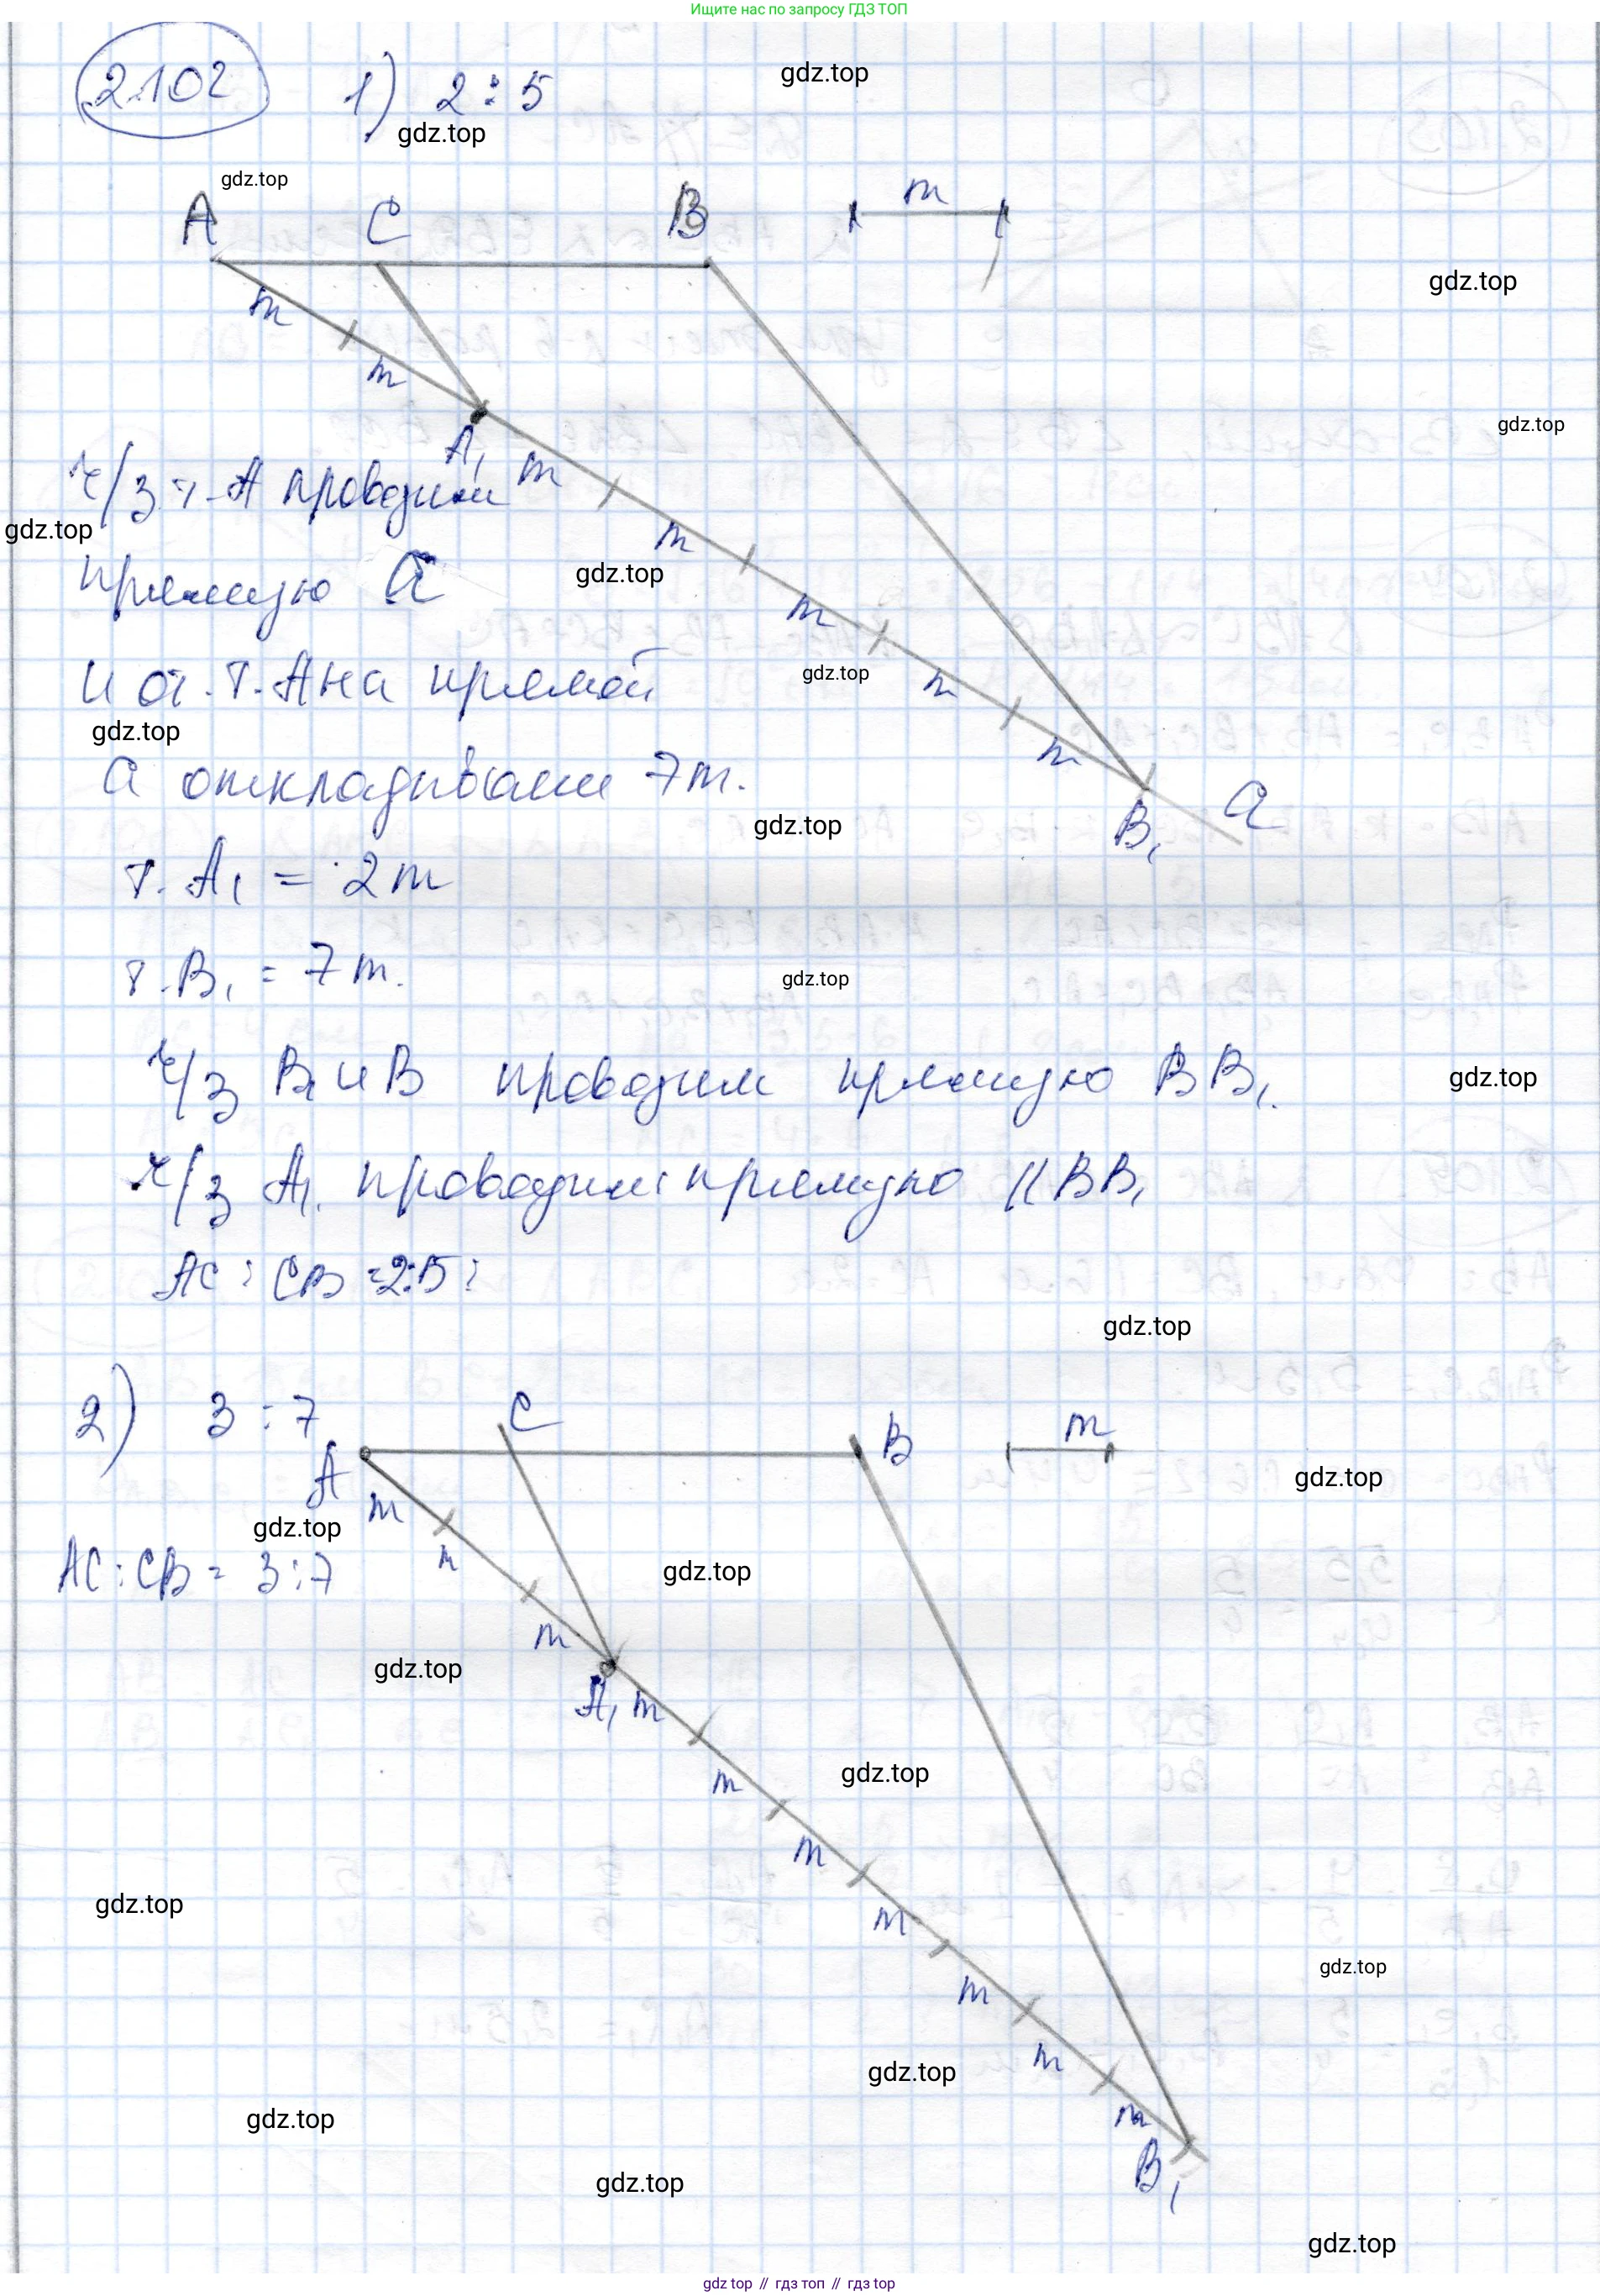 Ищите нас по запросу ГДЗ ТОП
2.102 1) 2 : 5
gdz.top
gdz.top
gdz.top
A C B m
gdz.top
m
m
gdz.top
A₁ m
ч/з т. A проводим
gdz.top
m
gdz.top
прямую a
m
и от т. A на прямой
gdz.top
m
gdz.top
m
a откладываем 7m.
B₁ a
gdz.top
т. A₁ = 2m
т. B₁ = 7m.
gdz.top
ч/з B₁ и B проводим прямую BB₁.
gdz.top
ч/з A₁ проводим прямую || BB₁
AC : CB = 2:5
gdz.top
2) 3 : 7
C
A B m
gdz.top
m
gdz.top
m
AC : CB = 3:7
gdz.top
m
gdz.top
A₁ m
gdz.top
m
m
gdz.top
m
gdz.top
m
m
gdz.top
m
gdz.top
B₁
gdz.top
gdz.top
gdz top // гдз топ // гдз top